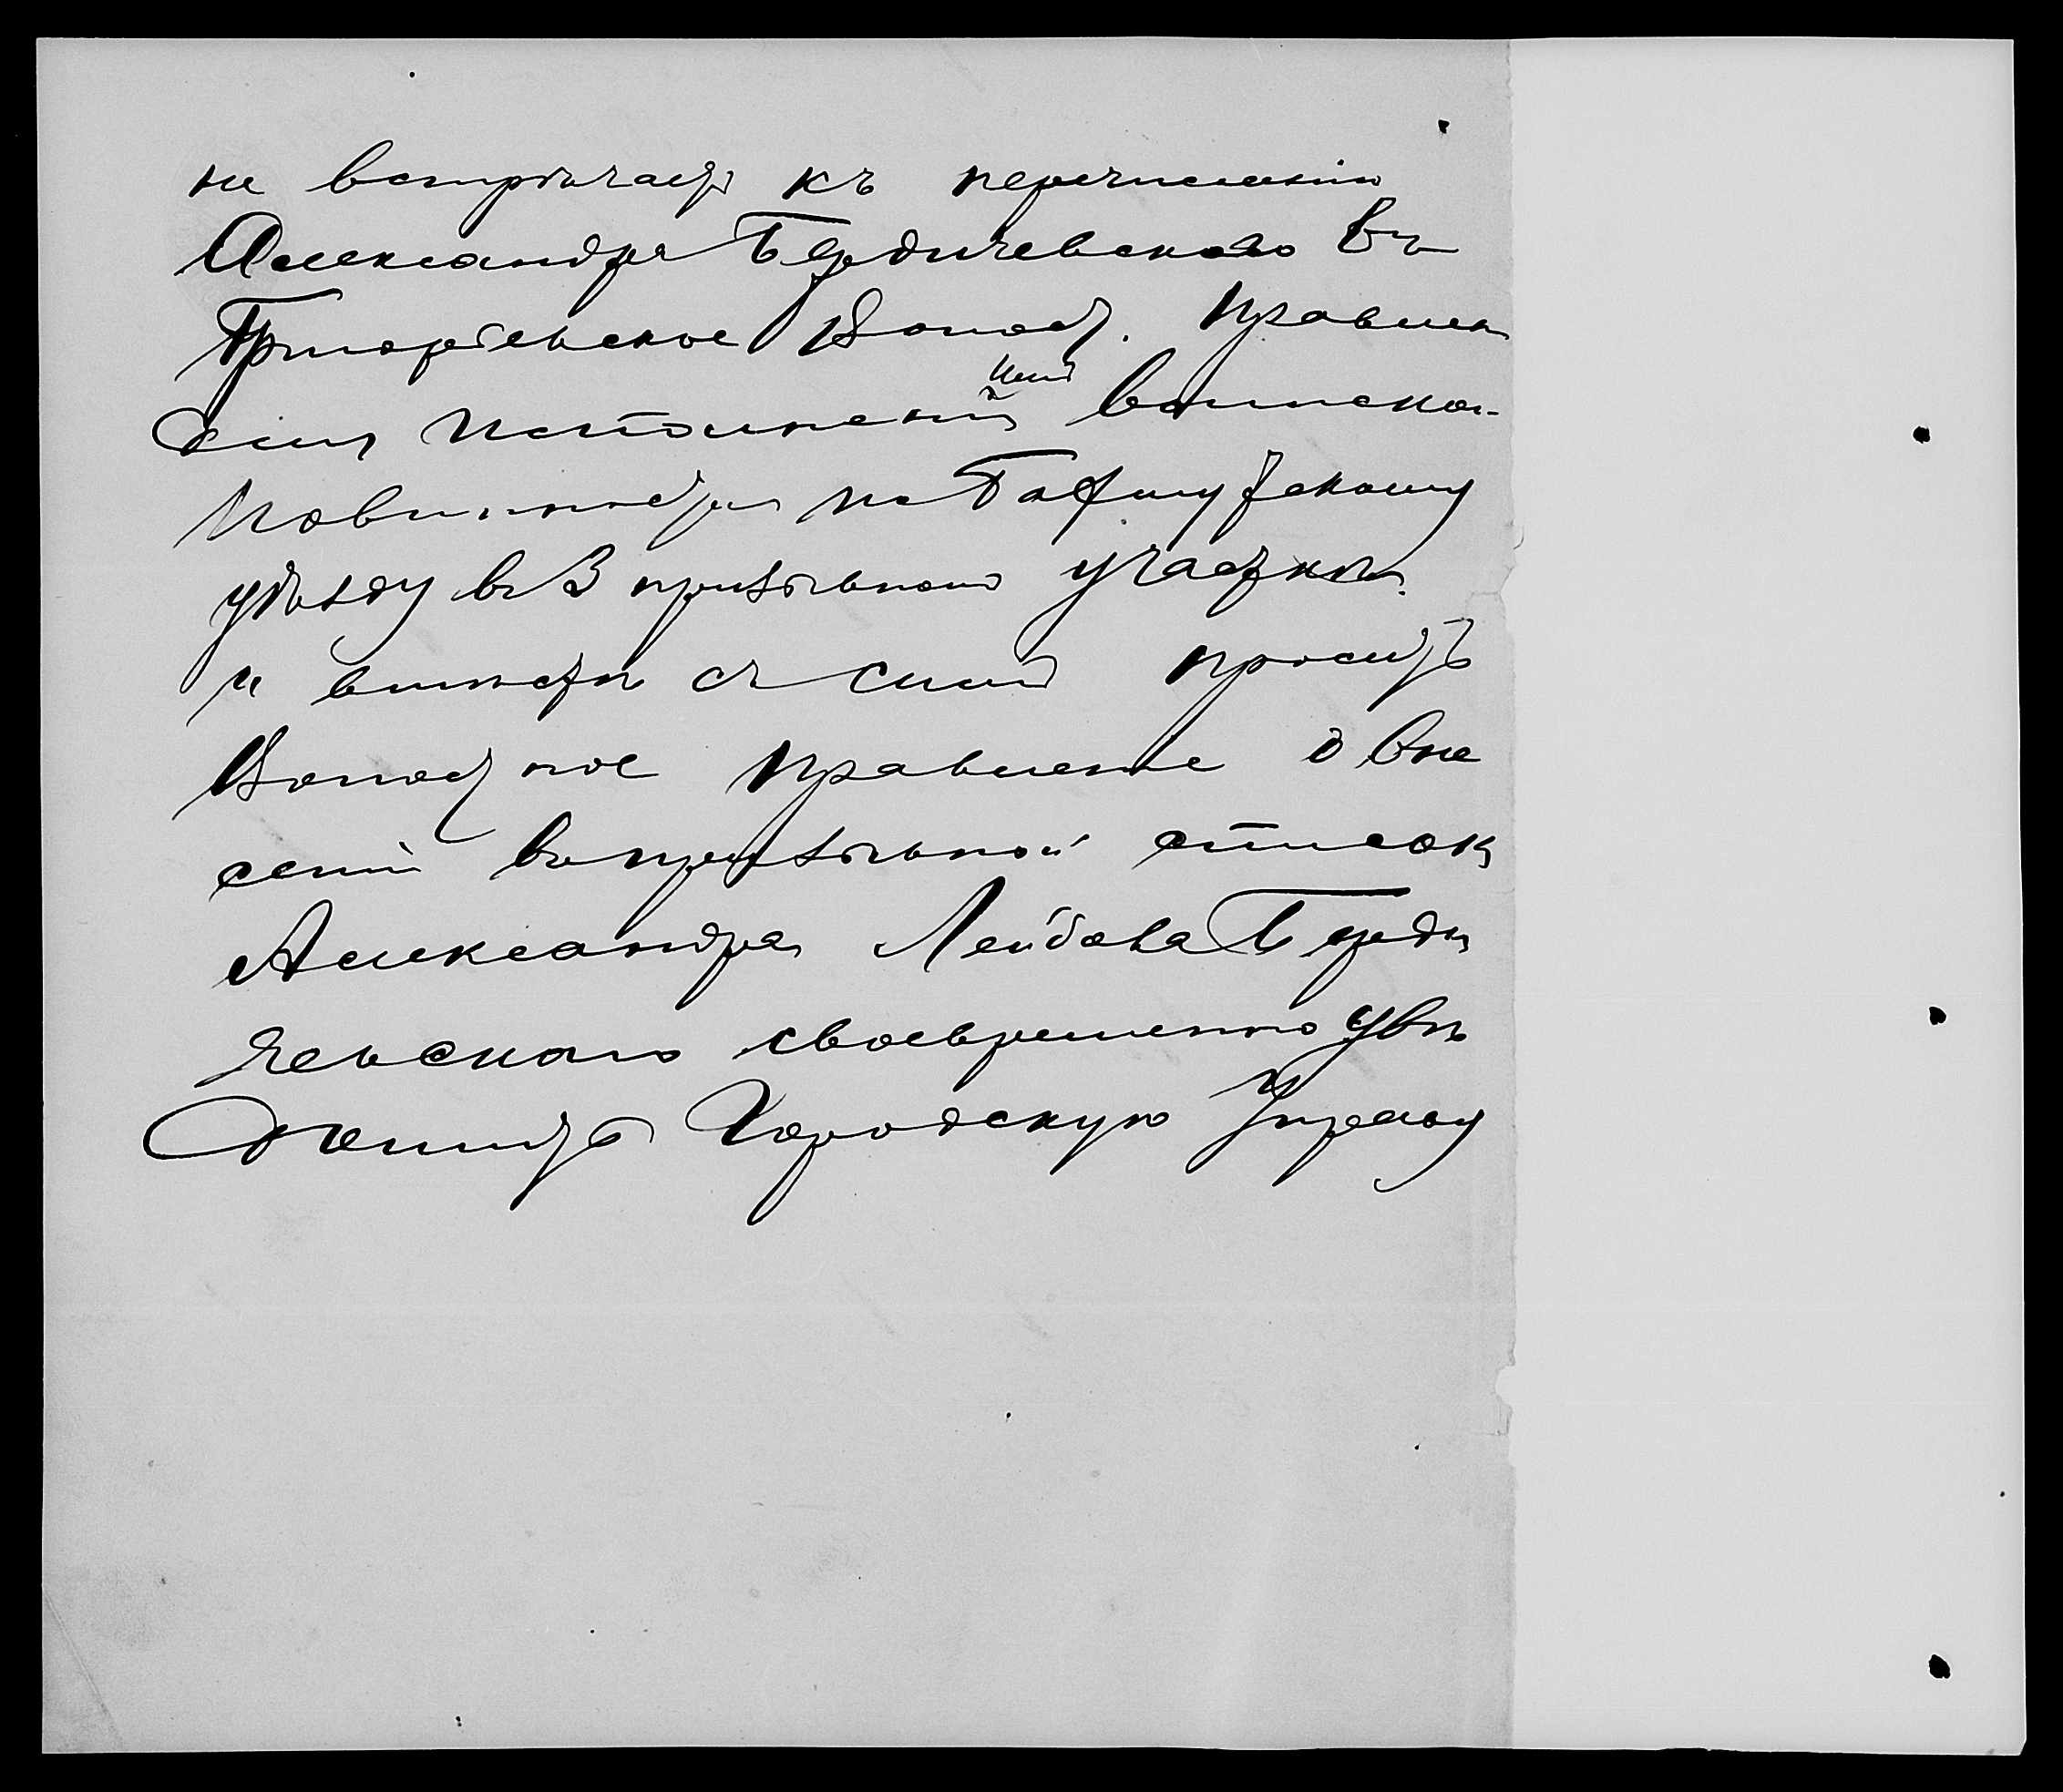 не встрѣчаетъ къ перечисленію
Александра Бердичевскаго въ
Григорьевское Волост. Правлен
для исполненія имъ воинской
повинности по Бахмутскому
уѣзду въ 3 призывномъ участкѣ.
и вмѣстѣ съ симъ проситъ
Волостное Правленіе о вне
сеніи въ призывной списокъ
Александра Лейбова Берди
чевскаго своевременно увѣ
домить Городскую Управу